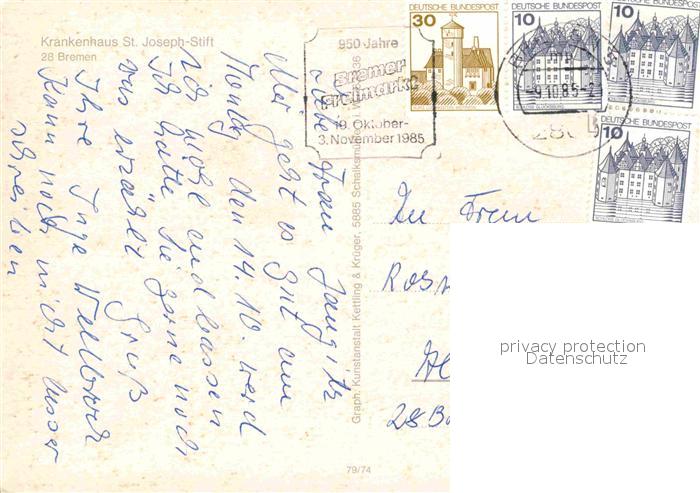 Krankenhaus St. Joseph-Stift
28 Bremen
950 Jahre
Bremer
Freimarkt
19. Oktober-
3. November 1985
DEUTSCHE BUNDESPOST
30
DEUTSCHE BUNDESPOST
10
DEUTSCHE BUNDESPOST
10
DEUTSCHE BUNDESPOST
10
-9.10.85-2
28
Liebe Frau
Mir geht es gut am
Montag den 14.10. werd
ich wohl entlassen
Ich hätte Sie gerne noch
was erzählt Gruß
Ihre Inge
Kann noch nicht besser
schreiben
Graph. Kunstanstalt Kettling & Krüger, 5885 Schalksmühle
79/74
An Frau
28 B
privacy protection
Datenschutz